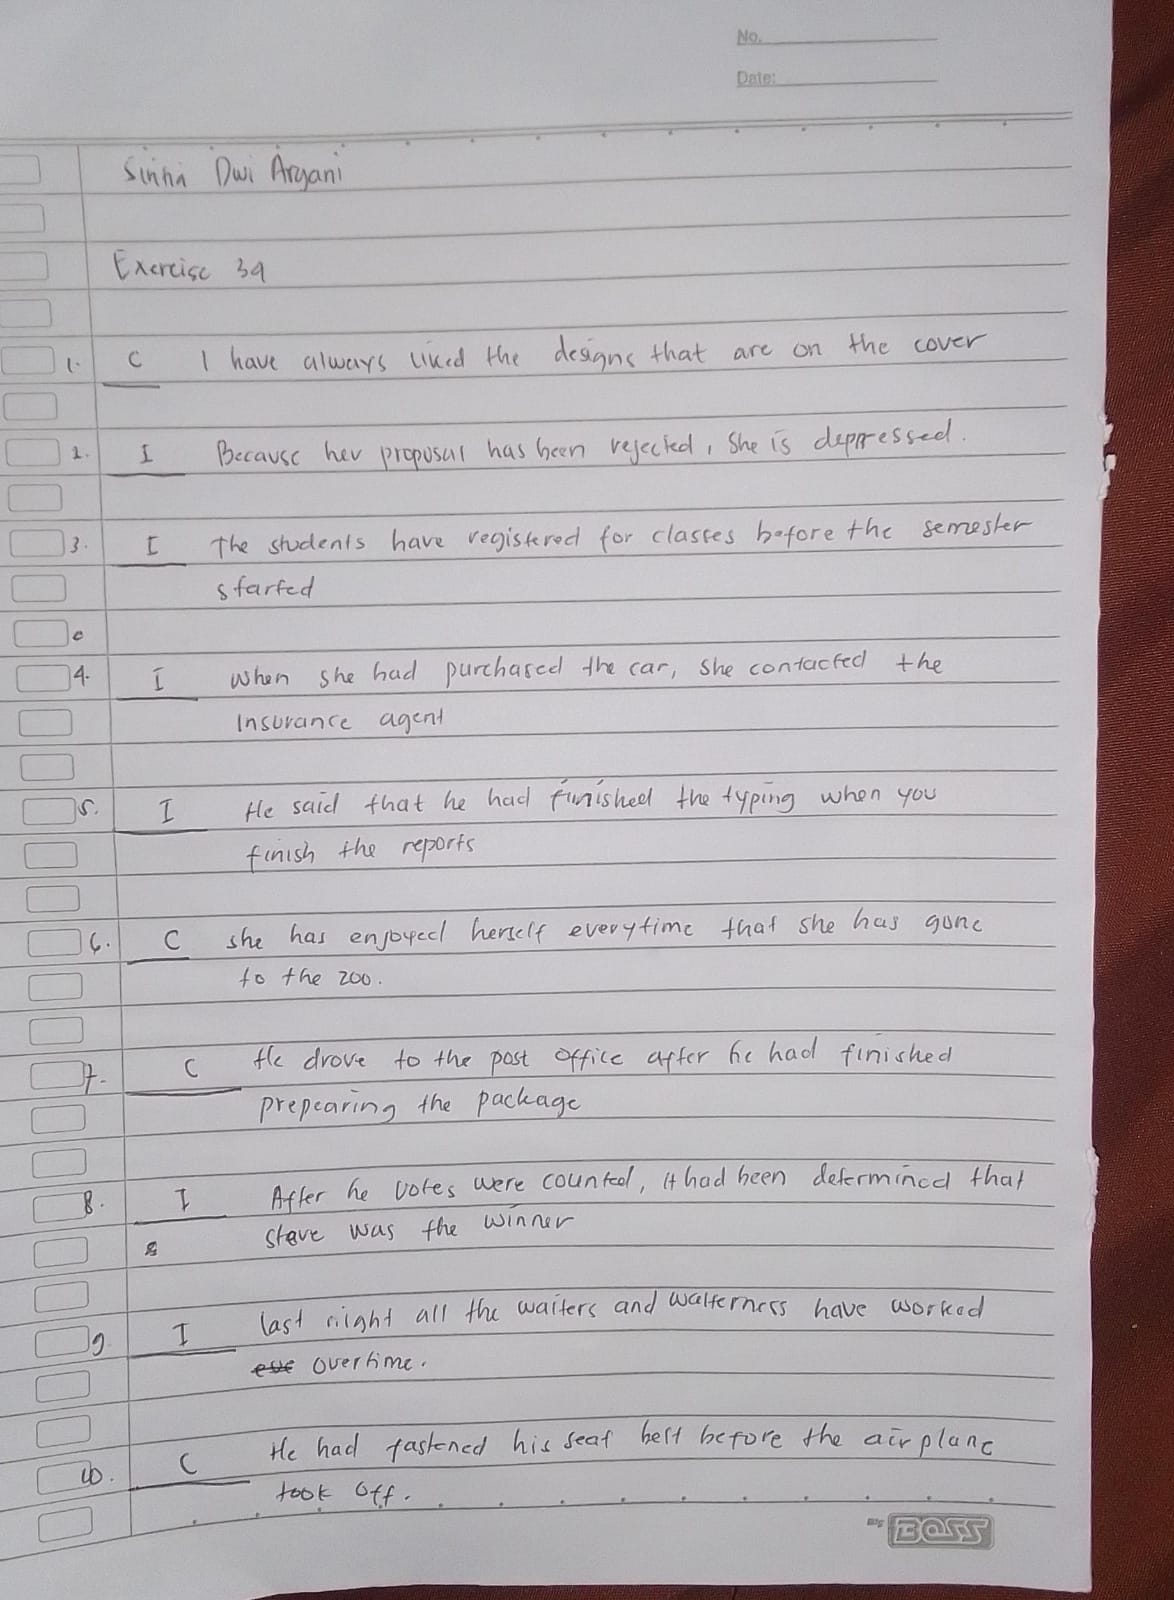 No.
Date:
Sinna Dwi Aryani
Exercise 39
1. C I have always liked the designs that are on the cover
2. I Because her proposal has been rejected, She is deppressed.
3. I The students have registered for classes before the semester
started
4. I When she had purchased the car, she contacted the
Insurance agent
5. I He said that he had finished the typing when you
finish the reports
6. C she has enjoyed herself everytime that she has gone
to the zoo.
7. C He drove to the post office after he had finished
prepearing the package
8. I After he votes were counted, it had been determined that
Steve was the winner
9. I last night all the waiters and waiterness have worked
overtime.
10. C He had fastened his seat belt before the airplane
took off.
BOSS